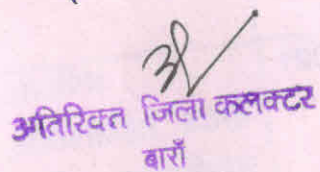 अतिरिक्त जिला कलक्टर
बाराँ